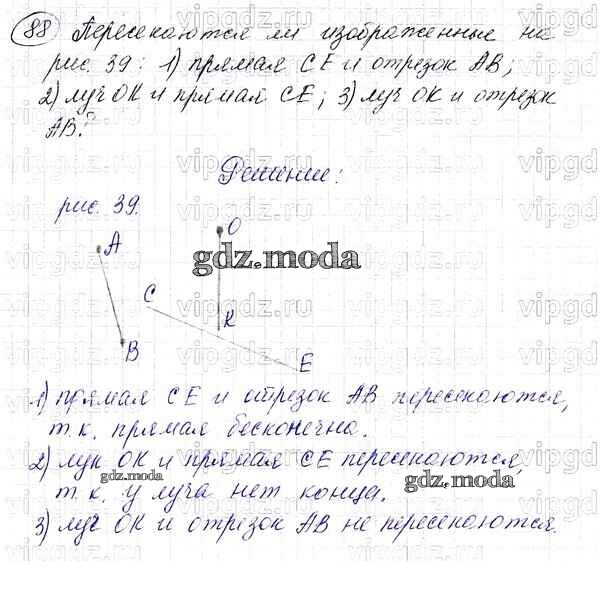 88 Пересекаются ли изображенные на
рис. 39: 1) прямая CE и отрезок AB;
2) луч OK и прямая CE; 3) луч OK и отрезок
AB?
Решение:
рис. 39.
O
A
gdz.moda
C
K
B
E
1) прямая CE и отрезок AB пересекаются,
т.к. прямая бесконечна.
2) луч OK и прямая CE пересекаются,
gdz.moda
т.к. у луча нет конца.
gdz.moda
3) луч OK и отрезок AB не пересекаются.
vipgdz.ru